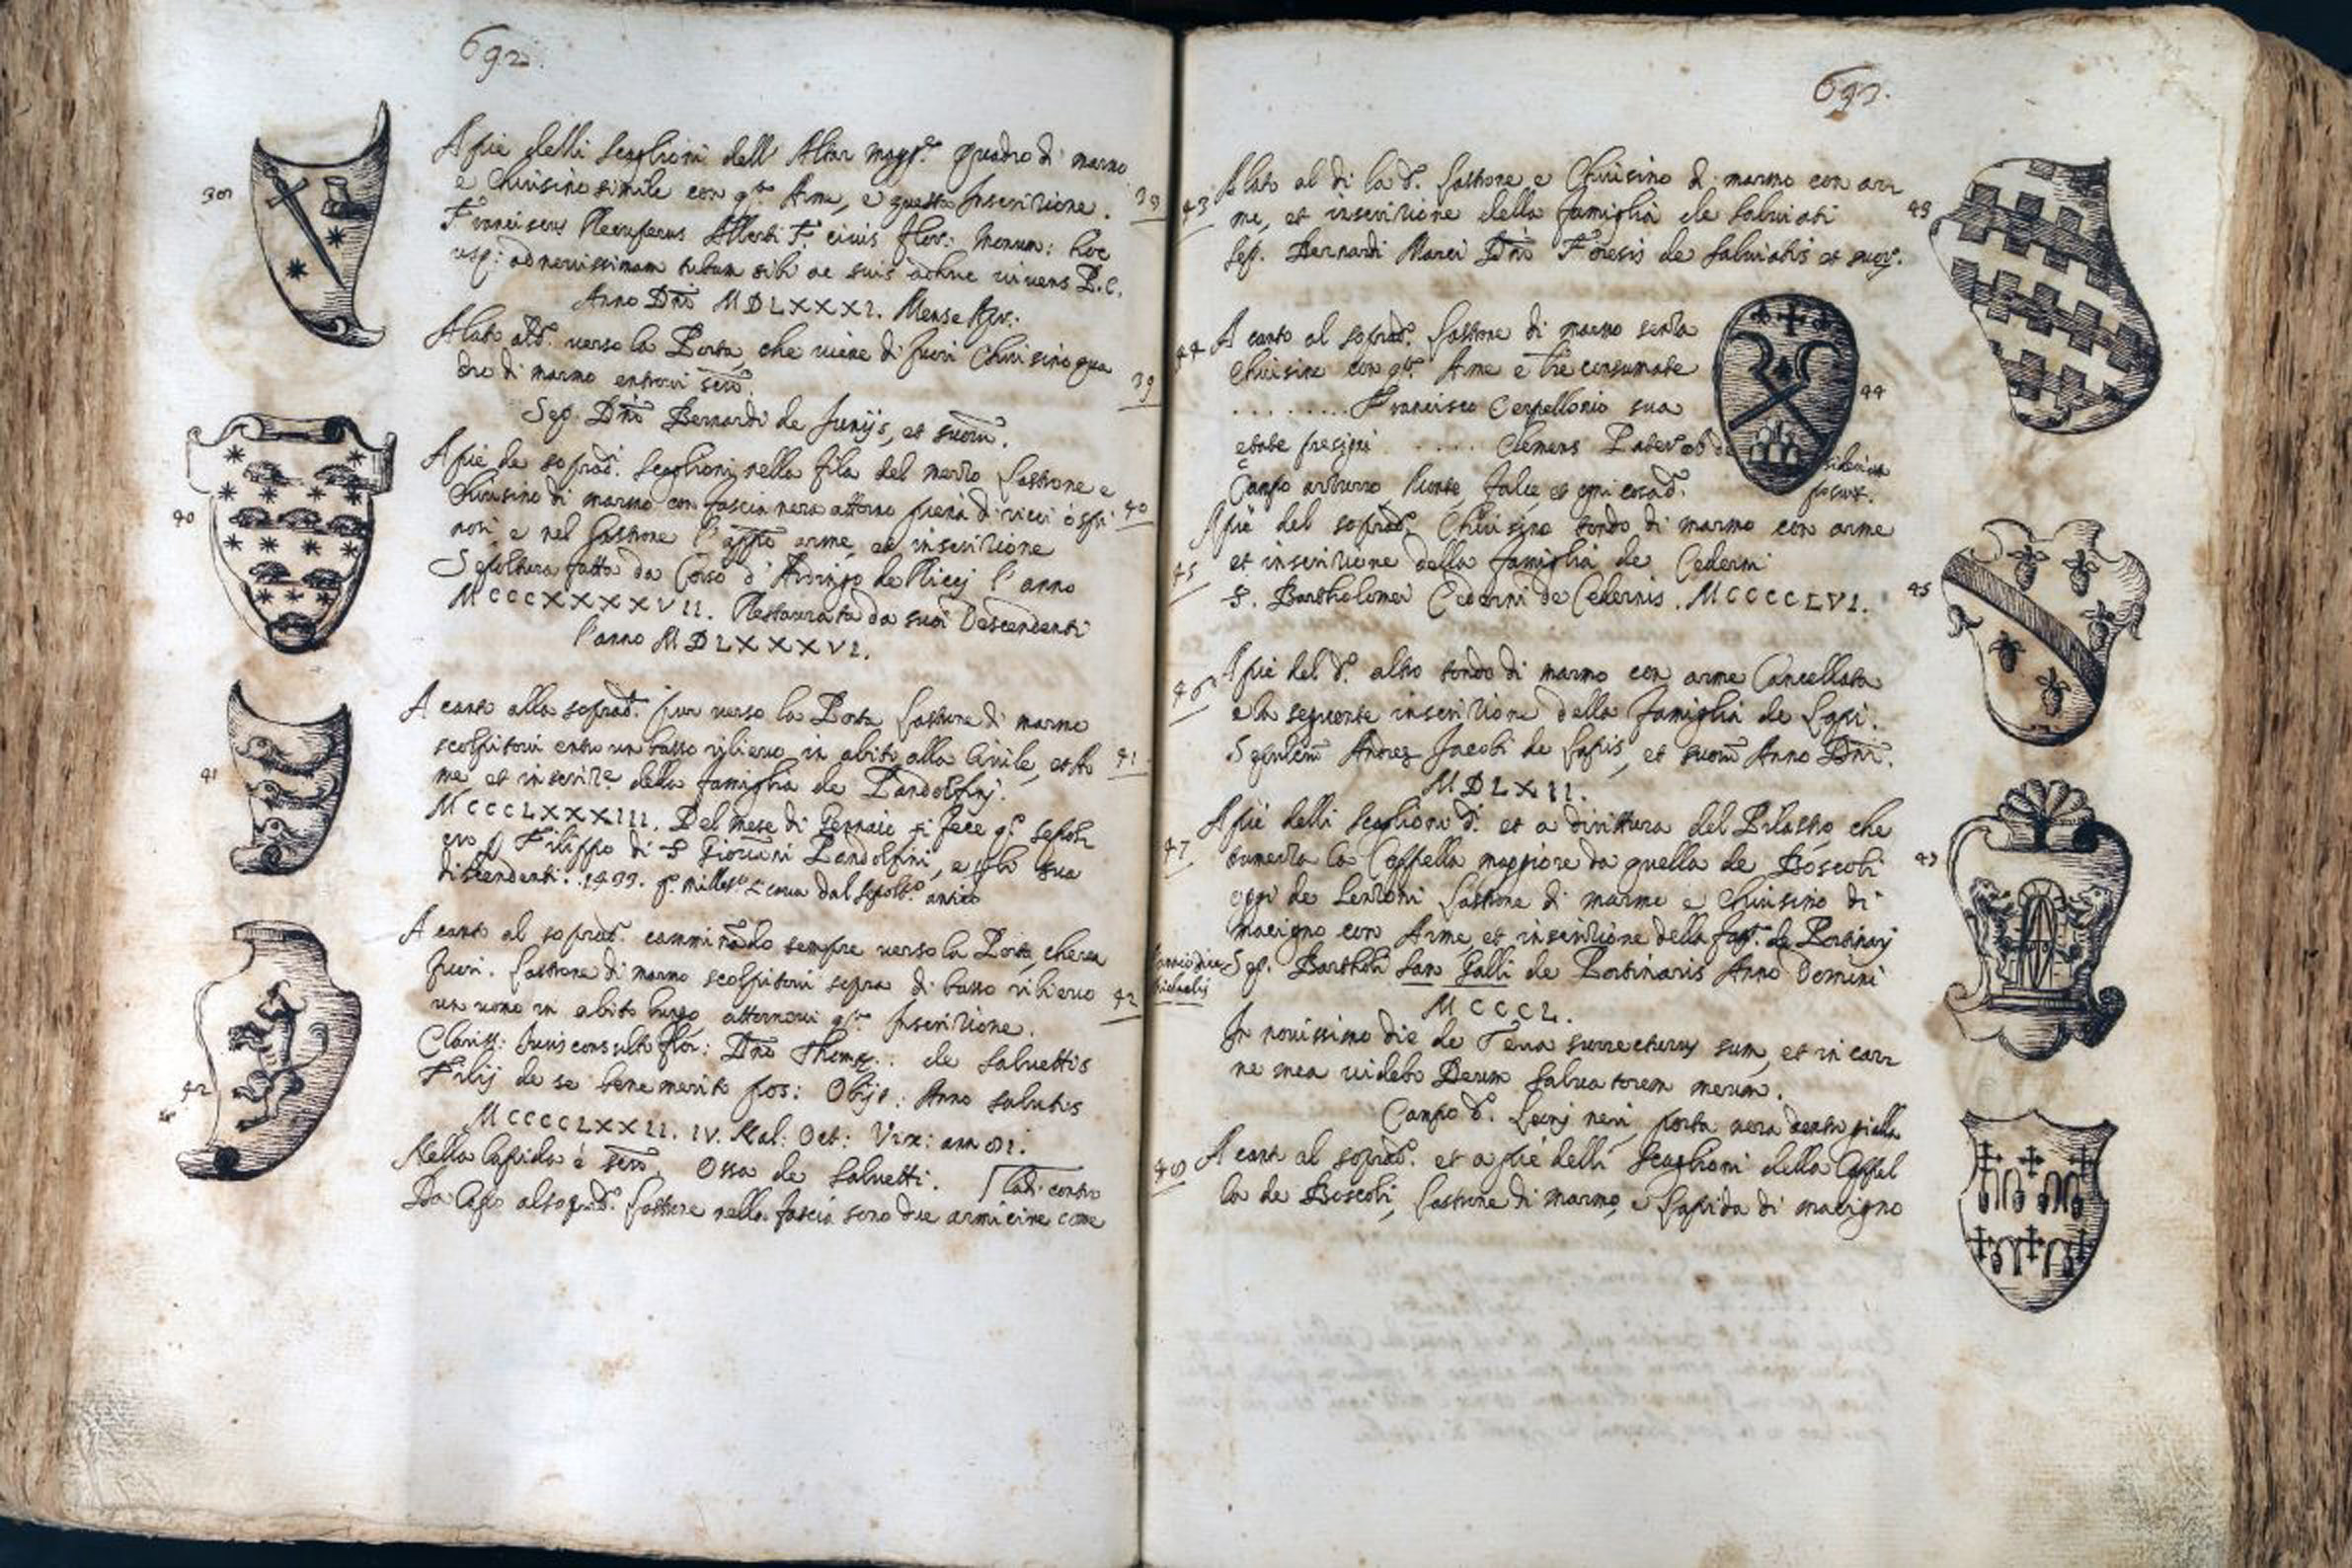 692.
A piè delli scaglioni dell' Altar magg.e quadro di marmo
e Chiusino simile con q.ta Arme, e questa Inscrizione.
38
Franciscus Alberti F. civis Flor: Monum: hoc
usq: ad novissimam tubam sibi ac suis adhuc vivens P.C.
Anno Dñi MDLXXXI. Mense
A lato al d.o verso la Porta, che viene di fuori Chiusino qua
dro di marmo entrovi
39
Sep. Dñi Bernardi de Junijs, et suoru.
A piè de soprad.i scaglioni nella fila del mezzo lastrone e
Chiusino di marmo con fascia nera attorno piena di ricci
40
e nel lastrone arme, et inscrizione
Sepoltura fatta da Corso d'Ardingo de Ricci l'anno
MCCCXXXXVII. Restaurata da suoi Descendenti
l'anno MDLXXXVI.
A canto alla soprad.a pur verso la Porta lastrone di marmo
scolpitovi entro un basso rilievo in abito alla Civile, et Ar
41
me et inscriz.e della famiglia de Pandolfinj.
MCCCLXXXIII. Del mese di Gennaio si fece q.o sepolc
ro Filippo di S Giovani Pandolfini, e sua
discendenti. dal antico
A canto al soprad.o camminādo sempre verso la Porta, che va
fuori. lastrone di marmo scolpitovi sopra di basso rilievo
42
un uomo in abito lungo attornovi q.ta Inscrizione.
Clariss: Jurisconsulti Flor: Dñi Thomę: de Salvettis
Filij de se bene merito pos: Obijt: Anno salutis
MCCCCLXXII. IV. Kal: Oct: Vix: ann
Nella lapida è Ossa de Salvetti.
Da Capo al lastrone nella fascia sono due armicine come
40
41
42
693.
A lato al di la d.o lastrone e Chiusino di marmo con ar
43
me, et inscrizione della famiglia de Salviati
Sep. Bernardi Marci Dñi Foresis de Salviatis et suor.
43
A canto al soprad.o lastrone di marmo senza
44
Chiusino con q.ta Arme e l're consumate
. . . . . . . . Francisco Cerpellonio sua
. . . . Clemens Pater ob de
siderium
posuit.
44
Campo azzurro, Monte, Falce, et ogni cosa
A piè del soprad.o Chiusino tondo di marmo con arme
et inscrizione della famiglia de Cederni
45
S. Bartholomei Cederni de Cedernis. MCCCCLVI.
45
A piè del d.o altro tondo di marmo con arme Cancellata
46
e la seguente inscrizione della famiglia de Lapi.
Sepulcrū Andreę Jacobi de Lapis, et suorū Anno Dñi.
MDLXII.
A piè delli scaglioni d.i et a dirittura del Pilastro, che
47
tramezza la Cappella maggiore da quella de Boscoli
oggi de Lenzoni lastrone di marmo e Chiusino di
macigno con Arme, et inscrizione della fam. de Portinarj
Sep. Bartholi San Galli de Portinaris Anno Domini
MCCCL.
47
In novissimo die de Terra surrecturus sum, et in car
ne mea videbo Deum salvatorem meum.
Campo d. Leonj neri, porta nera dentro gialla
A canto al soprad.o et a piè delli scaglioni della Cappel
48
la de Boscoli, lastrone di marmo, e lapida di macigno